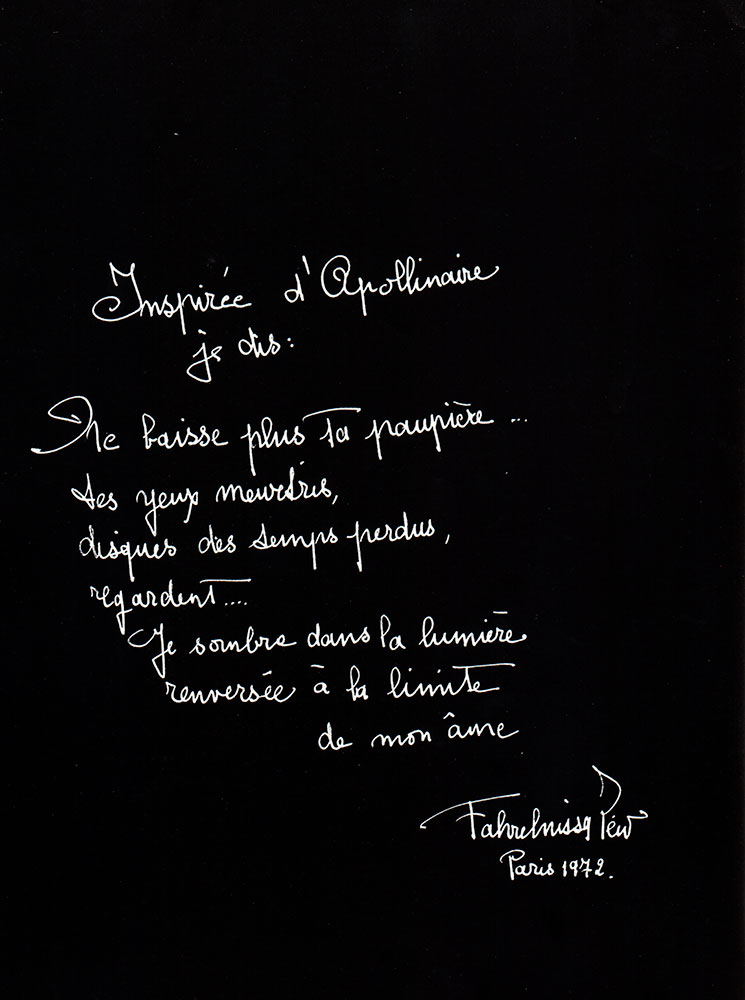 Inspirée d'Apollinaire
je dis:
Ne baisse plus ta paupière ...
tes yeux meurtris,
disques des temps perdus,
regardent....
Je sombre dans la lumière
renversée à la limite
de mon âme
Fahrelnissa Zeid
Paris 1972.